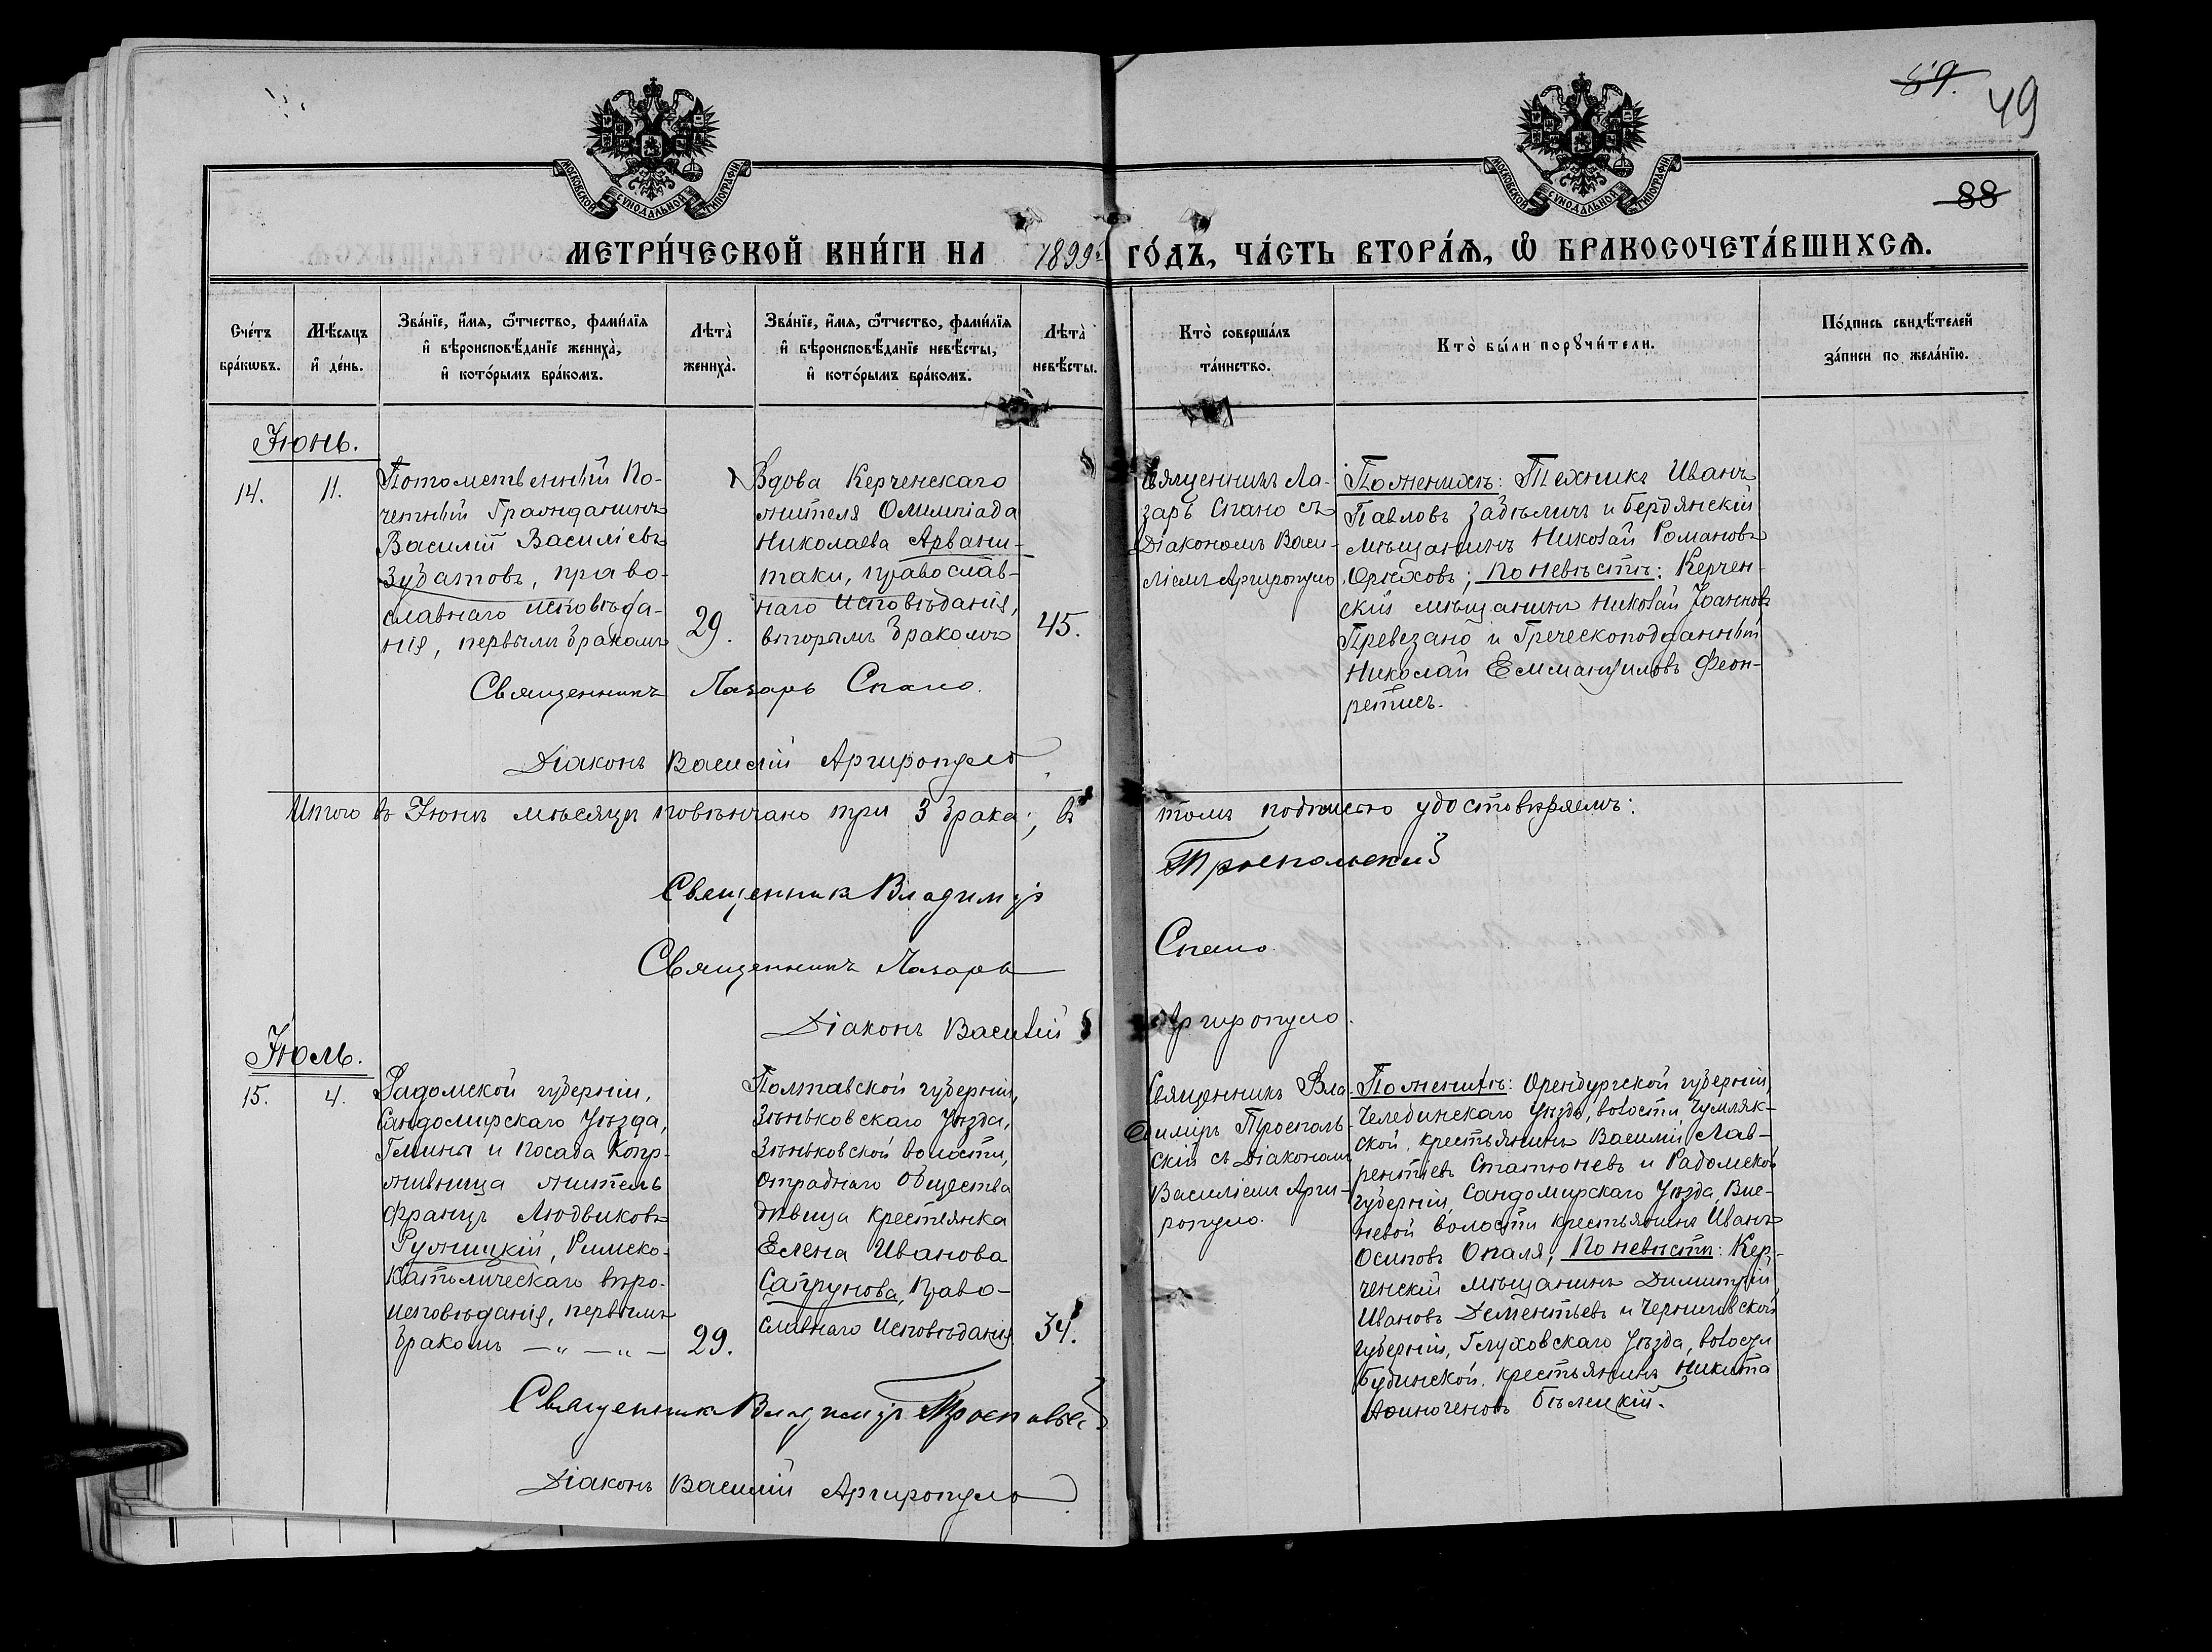 59.
49
88
МОСКОВСКОЙ СѴНОДАЛЬНОЙ ТИПОГРАФІИ
МОСКОВСКОЙ СѴНОДАЛЬНОЙ ТИПОГРАФІИ
МЕТРИ́ЧЕСКОЙ КНИ́ГИ НА 1899 г. ГО́ДЪ, ЧА́СТЬ ВТОРА́Ѧ, Ѽ БРАКОСОЧЕТА́ВШИХСѦ.
Сче́тъ
бра́кѡвъ.
Мѣ́сяцъ
и҆ де́нь.
Зва́нїе, и҆́мя, ѻ҆́тчество, фами́лїя
и҆ вѣроисповѣ́данїе жениха̀,
и҆ кото́рымъ бра́комъ.
Лѣта̀
жениха̀.
Зва́нїе, и҆́мя, ѻ҆́тчество, фами́лїя
и҆ вѣроисповѣ́данїе невѣ́сты,
и҆ кото́рымъ бра́комъ.
Лѣта̀
невѣ́сты.
Кто̀ соверша́лъ
та́инство.
Кто̀ бы́ли порꙋчи́тели.
По́дпись свидѣ́телей
за́писи по жела́нїю.
Іюнь.
14.
11.
Потомственный По-
четный Гражданинъ
Василій Василіевъ
Зубатовъ, право-
славнаго исповѣда-
нія, первымъ бракомъ
29.
Вдова Керченскаго
жителя Олимпіада
Николаева Арвани-
таки, православ-
наго исповѣданія,
вторымъ бракомъ
45.
Священникъ Ла-
зарь Спано съ
Діакономъ Васи-
ліемъ Аргиропуло
По женихѣ: Техникъ Иванъ
Павловъ и Бердянскій
мѣщанинъ Николай Романовъ
Орѣховъ; по невѣстѣ: Керчен-
скій мѣщанинъ Николай Іоанновъ
Превезано и Греческоподданный
Николай Еммануиловъ Феон-
ретисъ.
Священникъ Лазарь Спано.
Діаконъ Василій Аргиропуло.
Итого въ Іюнѣ мѣсяцѣ повѣнчано три 3 брака; въ томъ подписью удостовѣряемъ:
Священникъ Владиміръ Троепольскій
Священникъ Лазарь Спано.
Діаконъ Василій Аргиропуло.
Іюль.
15.
4.
Радомской губерніи,
Сандомирскаго Уѣзда,
Гмины и посада Копр-
живница житель
Францъ Людвиковъ
Ружицкій, Римско-
Католическаго вѣро-
исповѣданія, первымъ
бракомъ — „ — „ —
29.
Полтавской губерніи,
Зѣньковскаго Уѣзда,
Зѣньковской волости,
отраднаго общества
дѣвица крестьянка
Елена Иванова
Сапрунова, Право-
славнаго Исповѣданія
34.
Священникъ Вла-
диміръ Троеполь-
скій съ Діакономъ
Василіемъ Арги-
ропуло.
По женихѣ: Оренбургской губерніи,
Челебинскаго Уѣзда, волости Чумляк-
ской, крестьянинъ Василій Лав-
рентіевъ Статюневъ и Радомской
губерніи, Сандомирскаго Уѣзда, Вис-
невой волости крестьянинъ Иванъ
Осиповъ Опаля; по невѣстѣ: Кер-
ченскій мѣщанинъ Димитрій
Ивановъ Дементьевъ и Черниговской
губерніи, Глуховскаго Уѣзда, волости
Будинской, крестьянинъ Никита
Аѳиногеновъ Бѣлецкій.
Священникъ Владиміръ Троепольскій
Діаконъ Василій Аргиропуло.